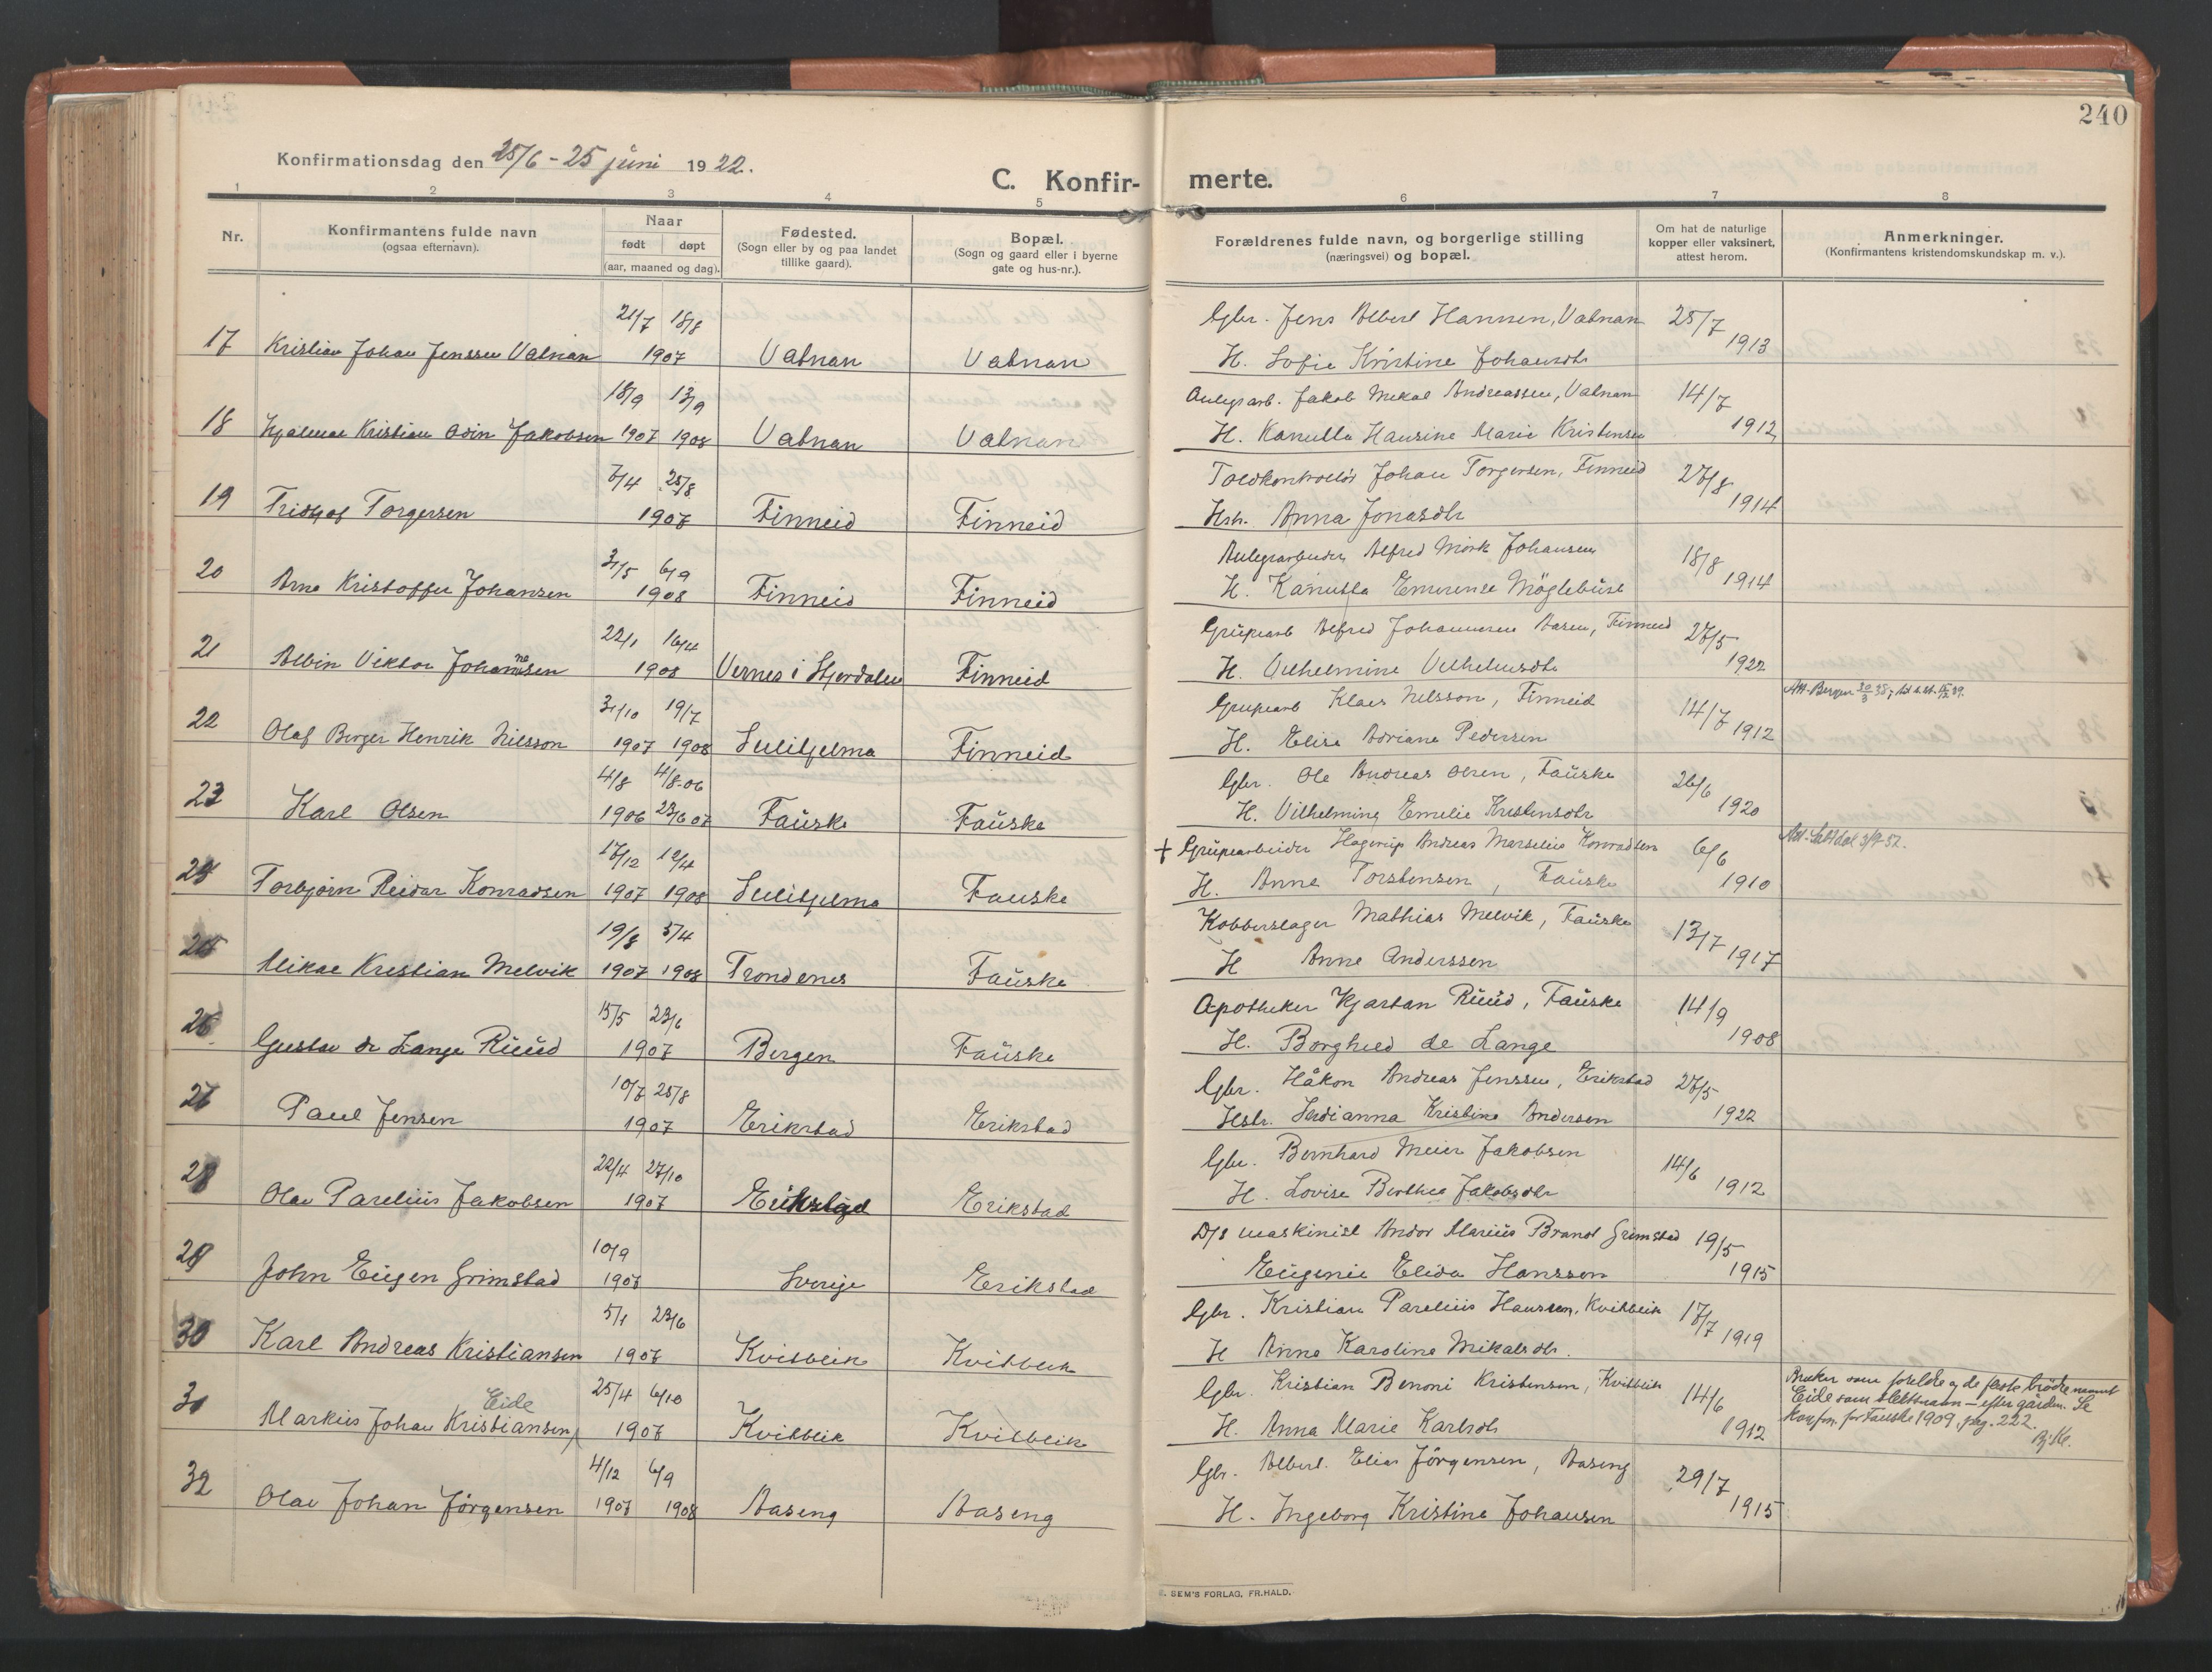 240
Konfirmationsdag den 25/6 - 25 juni 1922.
C. Konfirmerte.
1 2 3 4 5 6 7 8
Nr.
Konfirmantens fulde navn
(ogsaa efternavn).
Naar
født døpt
(aar, maaned og dag).
Fødested.
(Sogn eller by og paa landet
tillike gaard).
Bopæl.
(Sogn og gaard eller i byerne
gate og hus-nr.).
Forældrenes fulde navn, og borgerlige stilling
(næringsvei) og bopæl.
Om hat de naturlige
kopper eller vaksinert,
attest herom.
Anmerkninger.
(Konfirmantens kristendomskundskap m. v.).
21/7 18/8 Gbr. Jens Albert Hansen, Vatnan 25/7
17 Kristian Johan Jenssen Vatnan 1907 Vatnan Vatnan H. Sofie Kristine Johansdtr 1913
18/9 13/9 Anlegsarb. Jakob Mekal Andreassen, Vatnan 14/7
18 Hjalmar Kristian Odin Jakobsen 1907 1908 Vatnan Vatnan H. Kanutta Hansine Marie Kristensen 1912
7/4 25/8 Toldkontrollør Johan Torgersen, Finneid 27/8
19 Fridtjof Torgersen 1907 Finneid Finneid Hsh. Anna Jonasdtr 1914
31/5 6/9 Anlegsarbeider Alfred Mørk Johansen 18/8
20 Arne Kristoffer Johansen 1908 Finneid Finneid H. Kanutta Emerense Møglebust 1914
22/1 16/4 Grupearb Alfred Johannesen Aasen, Finneid 27/5
21 Albin Viktor Johannesen 1908 Vernes i Stjørdalen Finneid H. Vilhelmine Vilhelmsdtr 1922
31/10 19/7 Grupearb Klaes Nilsson, Finneid 14/7
22 Olaf Berger Henrik Nilsson 1907 1908 Sulitjelma Finneid H. Elise Adriane Pedersen 1912
4/8 4/8-06 Gbr. Ole Andreas Olsen, Fauske 26/6
23 Karl Olsen 1906 23/6 07 Fauske Fauske H. Vilhelmine Emelie Kristensdtr 1920
17/12 12/4 + Grupearbeider Hagerup Andreas Marselius Konradsen 6/6 Att. Saltdal 3/9-57.
24 Torbjørn Reidar Konradsen 1907 1908 Sulitjelma Fauske H. Anna Torstensen, Fauske 1910
19/8 5/4 Kobberslager Mathias Melvik, Fauske 13/7
25 Mikal Kristian Melvik 1907 1908 Trondenes Fauske H Anne Anderssen 1917
15/5 23/6 Apotheker Kjartan Ruud, Fauske 14/9
26 Gustav de Lange Ruud 1907 Bergen Fauske H. Borghild de Lange 1908
10/7 25/8 Gbr. Håkon Andreas Jenssen, Erikstad 27/5
27 Paul Jensen 1907 Erikstad Erikstad Hstr. Serdianna Kristine Andersen 1922
22/4 27/10 Gbr. Bernhard Meier Jakobsen 14/6
28 Olav Parelius Jakobsen 1907 Erikstad Erikstad H. Lovise Berthea Jakobsdtr 1912
10/9 D/s maskinist Andor Marius Brandt Grimstad 19/5
29 John Eugen Grimstad 1907 Sverige Erikstad Eugenie Elida Hansson 1915
5/1 23/6 Gbr. Kristian Parelius Hanssen, Kvitblik 17/7
30 Karl Andreas Kristiansen 1907 Kvitblik Kvitblik H Anna Karoline Mikalsdtr. 1919
Eide 25/4 6/10 Gbr. Kristian Benoni Kristensen, Kvitblik 14/6
31 Markus Johan Kristiansen 1907 Kvitblik Kvitblik H. Anna Marie Karlsdtr 1912
Bruker som foreldre og de fleste brødre navnet
Eide som slektsnavn - efter gården. Se
Konfm. for Fauske 1909, pag. 222.
4/12 6/9 Gbr. Albert Elias Jørgensen, Aaseng 29/7
32 Olav Johan Jørgensen 1907 1908 Aaseng Aaseng H. Ingeborg Kristine Johansen 1915
SEM'S FORLAG, FR.HALD.